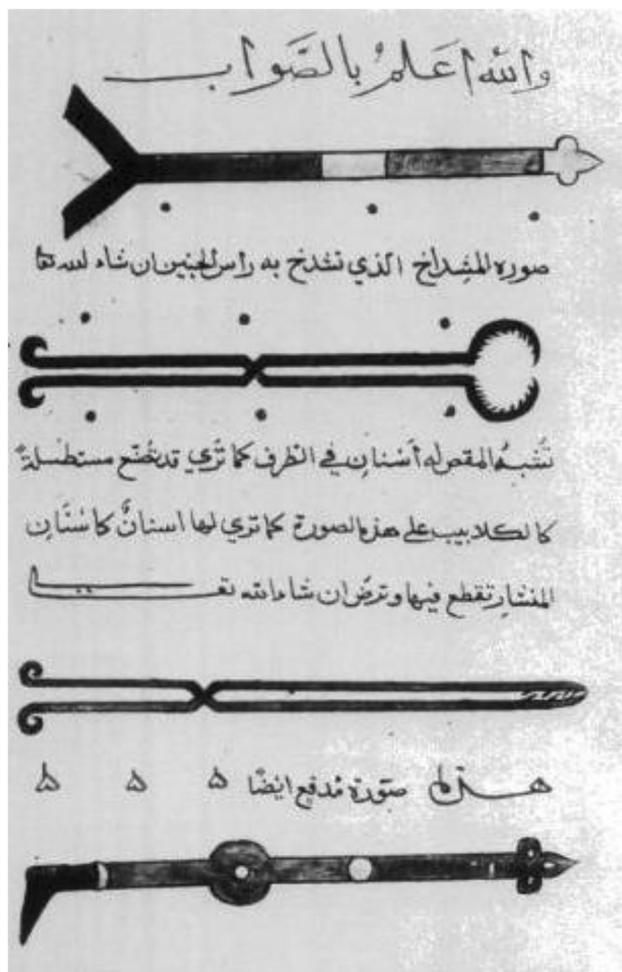 والله أعلمُ بالصَّواب
صورة المشداخ الذي تشدخ به راس الجنين ان شاء لله تعا
تُشبهُ المقص له أسْنان في الطرف كما تُري قد تصنع مستطيلةً
كالكلاليب علي هذه الصورة كما تري لها اسنانٌ كاسْنَان
المنشار تقطع فيها وترضّ ان شاء الله تعالى
هذه صوّرة مدفع ايضًا ه ه ه